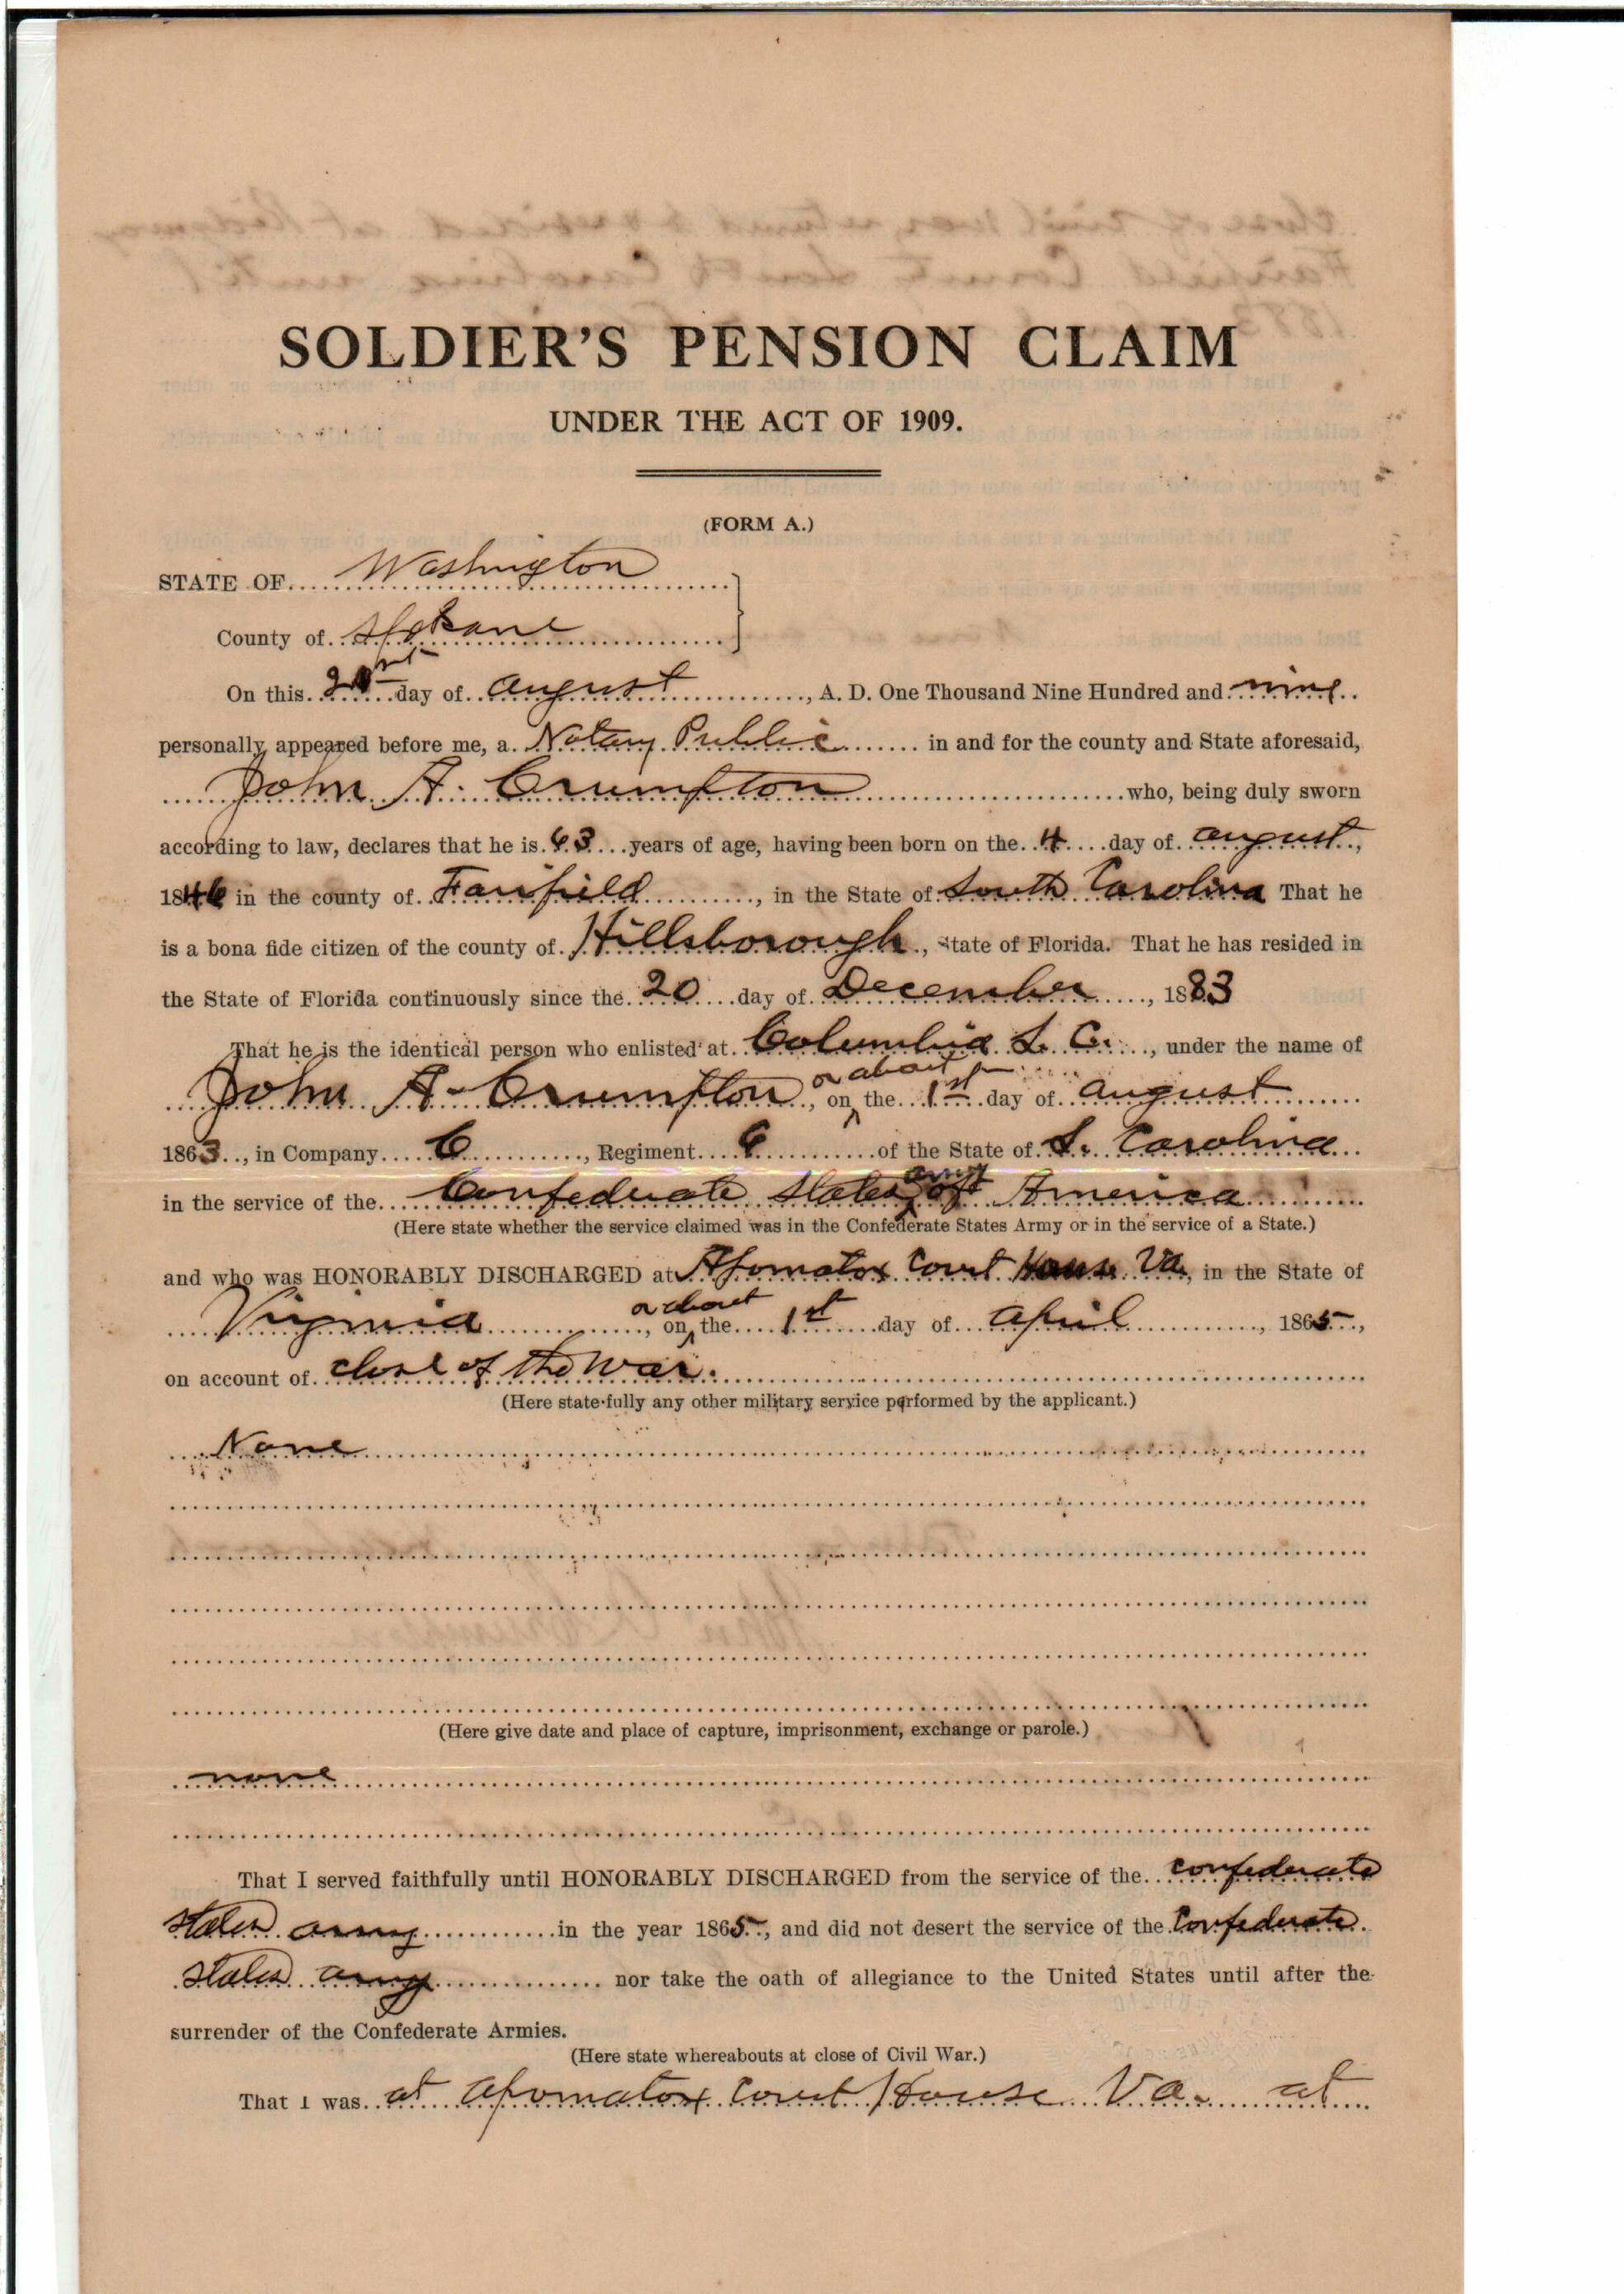 SOLDIER'S PENSION CLAIM
UNDER THE ACT OF 1909.
(FORM A.)
STATE OF Washington
County of Spokane
On this day of August, A. D. One Thousand Nine Hundred and nine
personally appeared before me, a Notary Public in and for the county and State aforesaid,
John A. Crumpton who, being duly sworn
according to law, declares that he is 63 years of age, having been born on the 4 day of August,
1846 in the county of Fairfield, in the State of South Carolina That he
is a bona fide citizen of the county of Hillsborough, State of Florida. That he has resided in
the State of Florida continuously since the 20 day of December, 1883
That he is the identical person who enlisted at Columbia S. C., under the name of
John A. Crumpton, on or about the 1st day of August
1863, in Company C, Regiment 6 of the State of S. Carolina
in the service of the Confederate States army of America
(Here state whether the service claimed was in the Confederate States Army or in the service of a State.)
and who was HONORABLY DISCHARGED at Apomatox Court House Va, in the State of
Virginia, on or about the 1st day of April, 1865,
on account of close of the war.
(Here state fully any other military service performed by the applicant.)
None
(Here give date and place of capture, imprisonment, exchange or parole.)
none
That I served faithfully until HONORABLY DISCHARGED from the service of the confederate
states army in the year 1865, and did not desert the service of the Confederate
States army nor take the oath of allegiance to the United States until after the
surrender of the Confederate Armies.
(Here state whereabouts at close of Civil War.)
That I was at Apomatox Court House Va. at